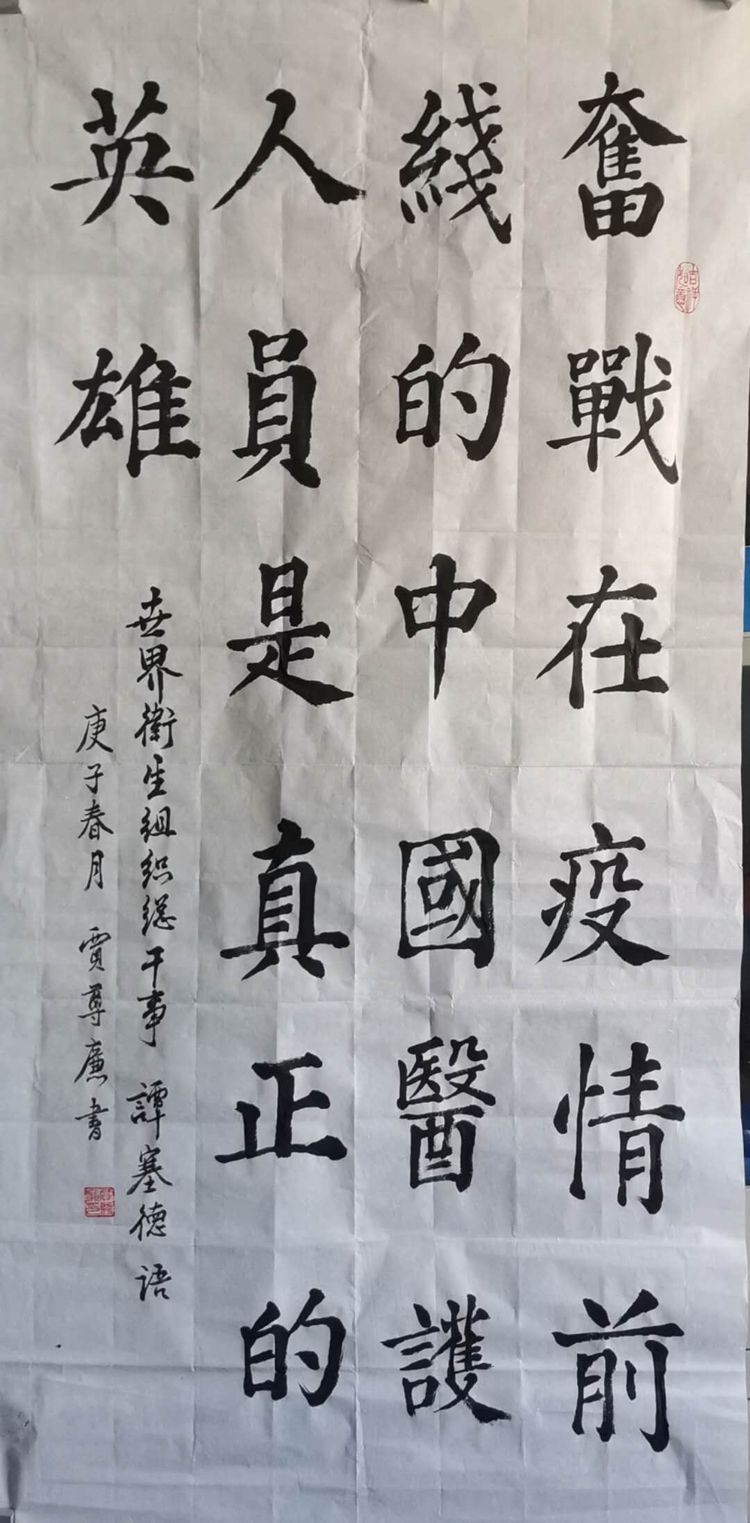 奮戰在疫情前
綫的中國醫護
人員是真正的
英雄
世界衛生組织總干事 譚塞德语
庚子春月 賈尊廉書